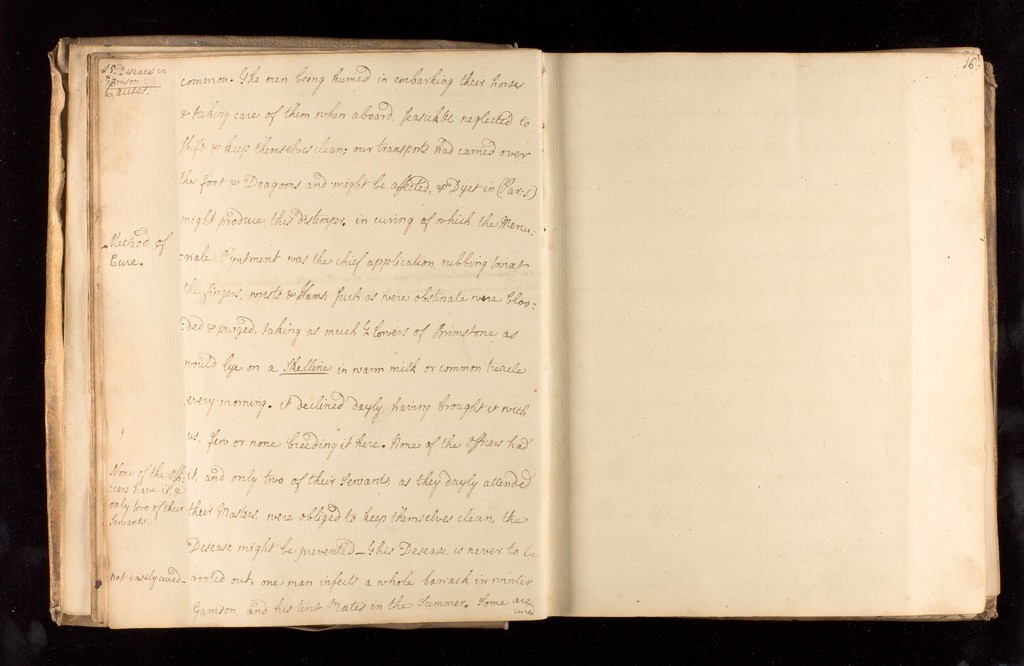 15. Diseases in
Garrison
Causes.
common. The men being hurried in embarking their horses
& taking care of them when aboard, seasick &c neglected to
shift & keep themselves clean; our transports had carried over
the foot & Dragoons and might be affected, & Dyet in (Par:s)
might produce this distemper, in curing of which the Mercu:
Method of
Cure.
:riale Oyntment was the chief application, rubbing twixt
the fingers, wrists & Hams. Such as were obstinate were bloo:
:ded & purged, taking as much Flowers of Brimstone as
would lye on a Skelline in warm milk or common treacle
every morning. it declined dayly, having brought it with
us, few or none breeding it here. None of the Officers had
None of the Offi:
:cers have it, &
only two of their
Servants.
it, and only two of their Servants, as they dayly attended
their Masters, were obliged to keep themselves clean, the
Desease might be prevented_This Desease is never to be
not easely cured_
rooted out, one man infects a whole barrack in winter
Garrison, and his tent Mates in the Summer. Some are
cured
16.